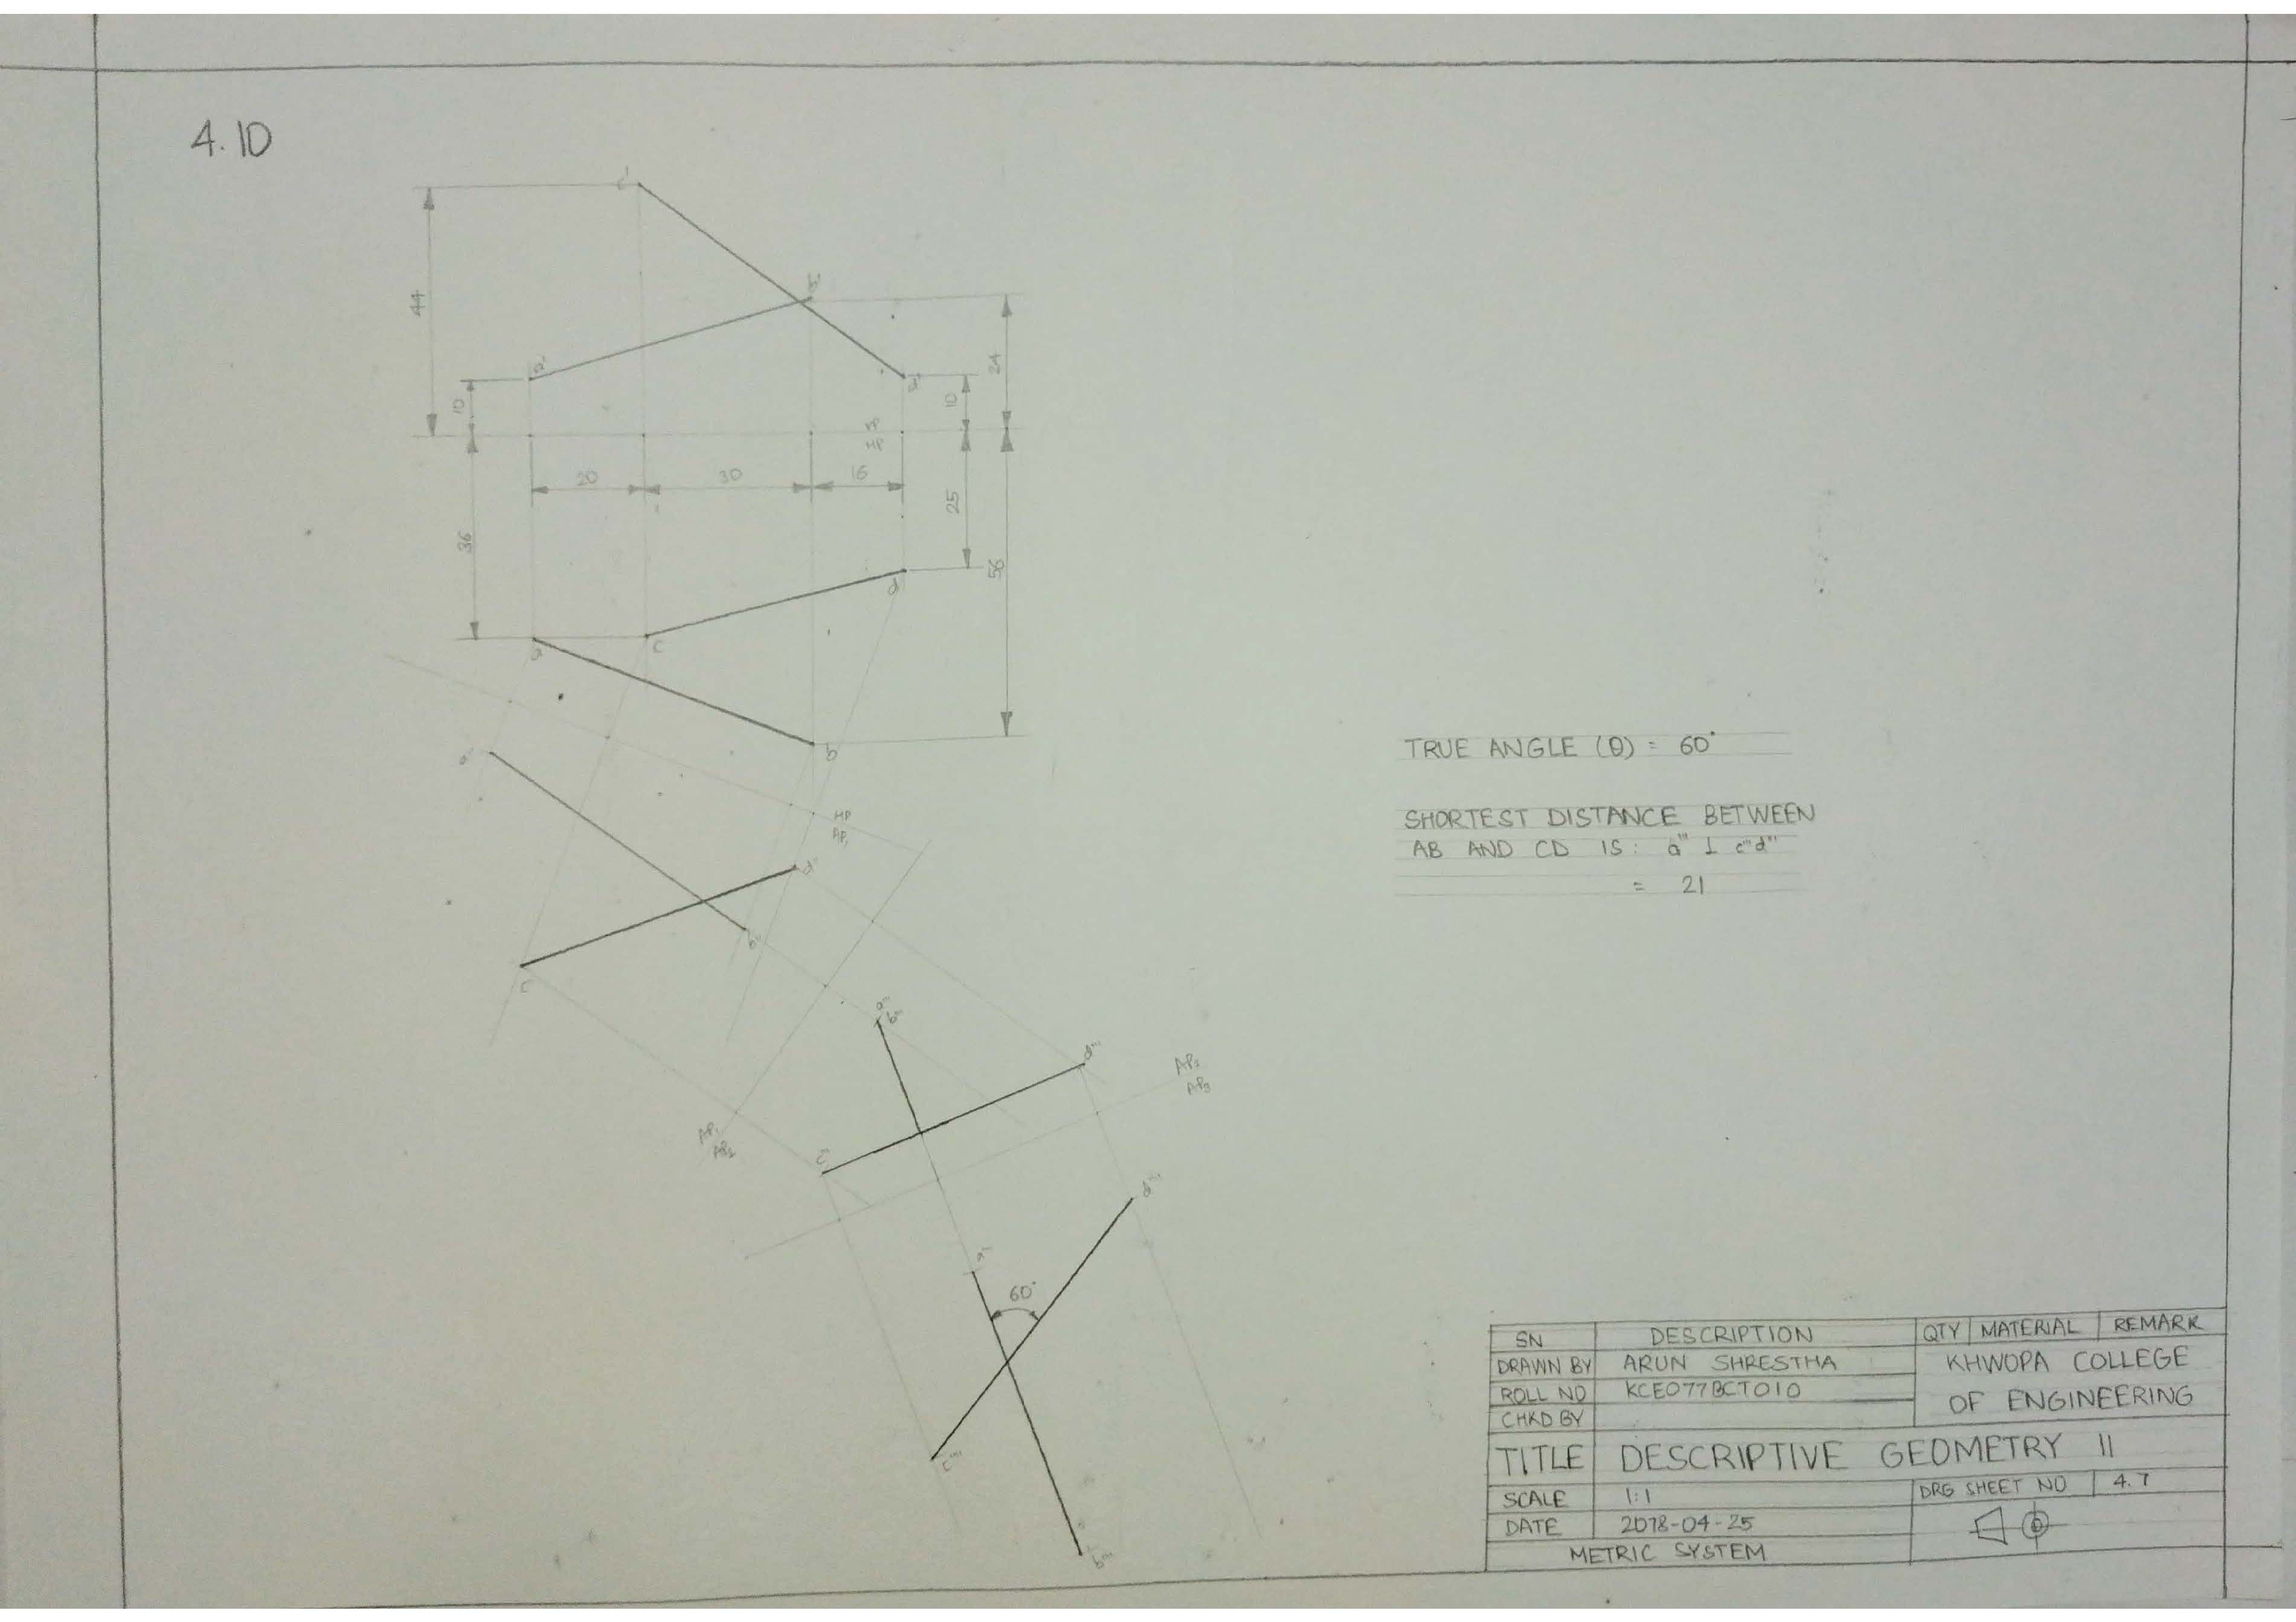 4.10
c'
b'
a'
d'
44
10
10
24
20
30
16
36
25
56
a
c
d
b
a"
HP
AP₁
d"
b"
c"
a'''
b'''
d'''
AP₂
AP₃
AP₁
AP₂
c'''
60°
TRUE ANGLE (θ) = 60°
SHORTEST DISTANCE BETWEEN
AB AND CD IS : a''' ⊥ c'''d'''
= 21
SN DESCRIPTION QTY MATERIAL REMARK
DRAWN BY ARUN SHRESTHA KHWOPA COLLEGE
ROLL NO KCE077BCT010 OF ENGINEERING
CHKD BY
TITLE DESCRIPTIVE GEOMETRY II
SCALE 1:1 DRG SHEET NO 4.7
DATE 2078-04-25
METRIC SYSTEM